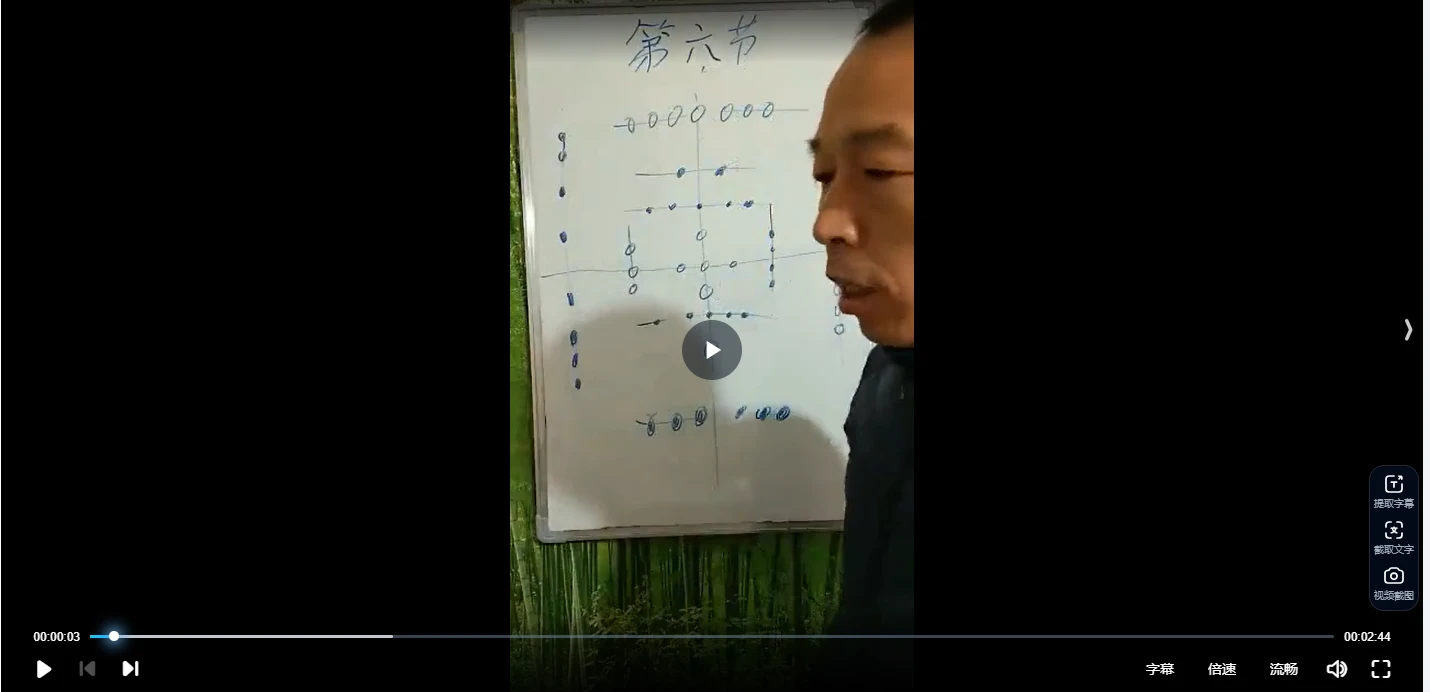 第六节
提取字幕
截取文字
视频截图
00:00:03
00:02:44
字幕 倍速 流畅